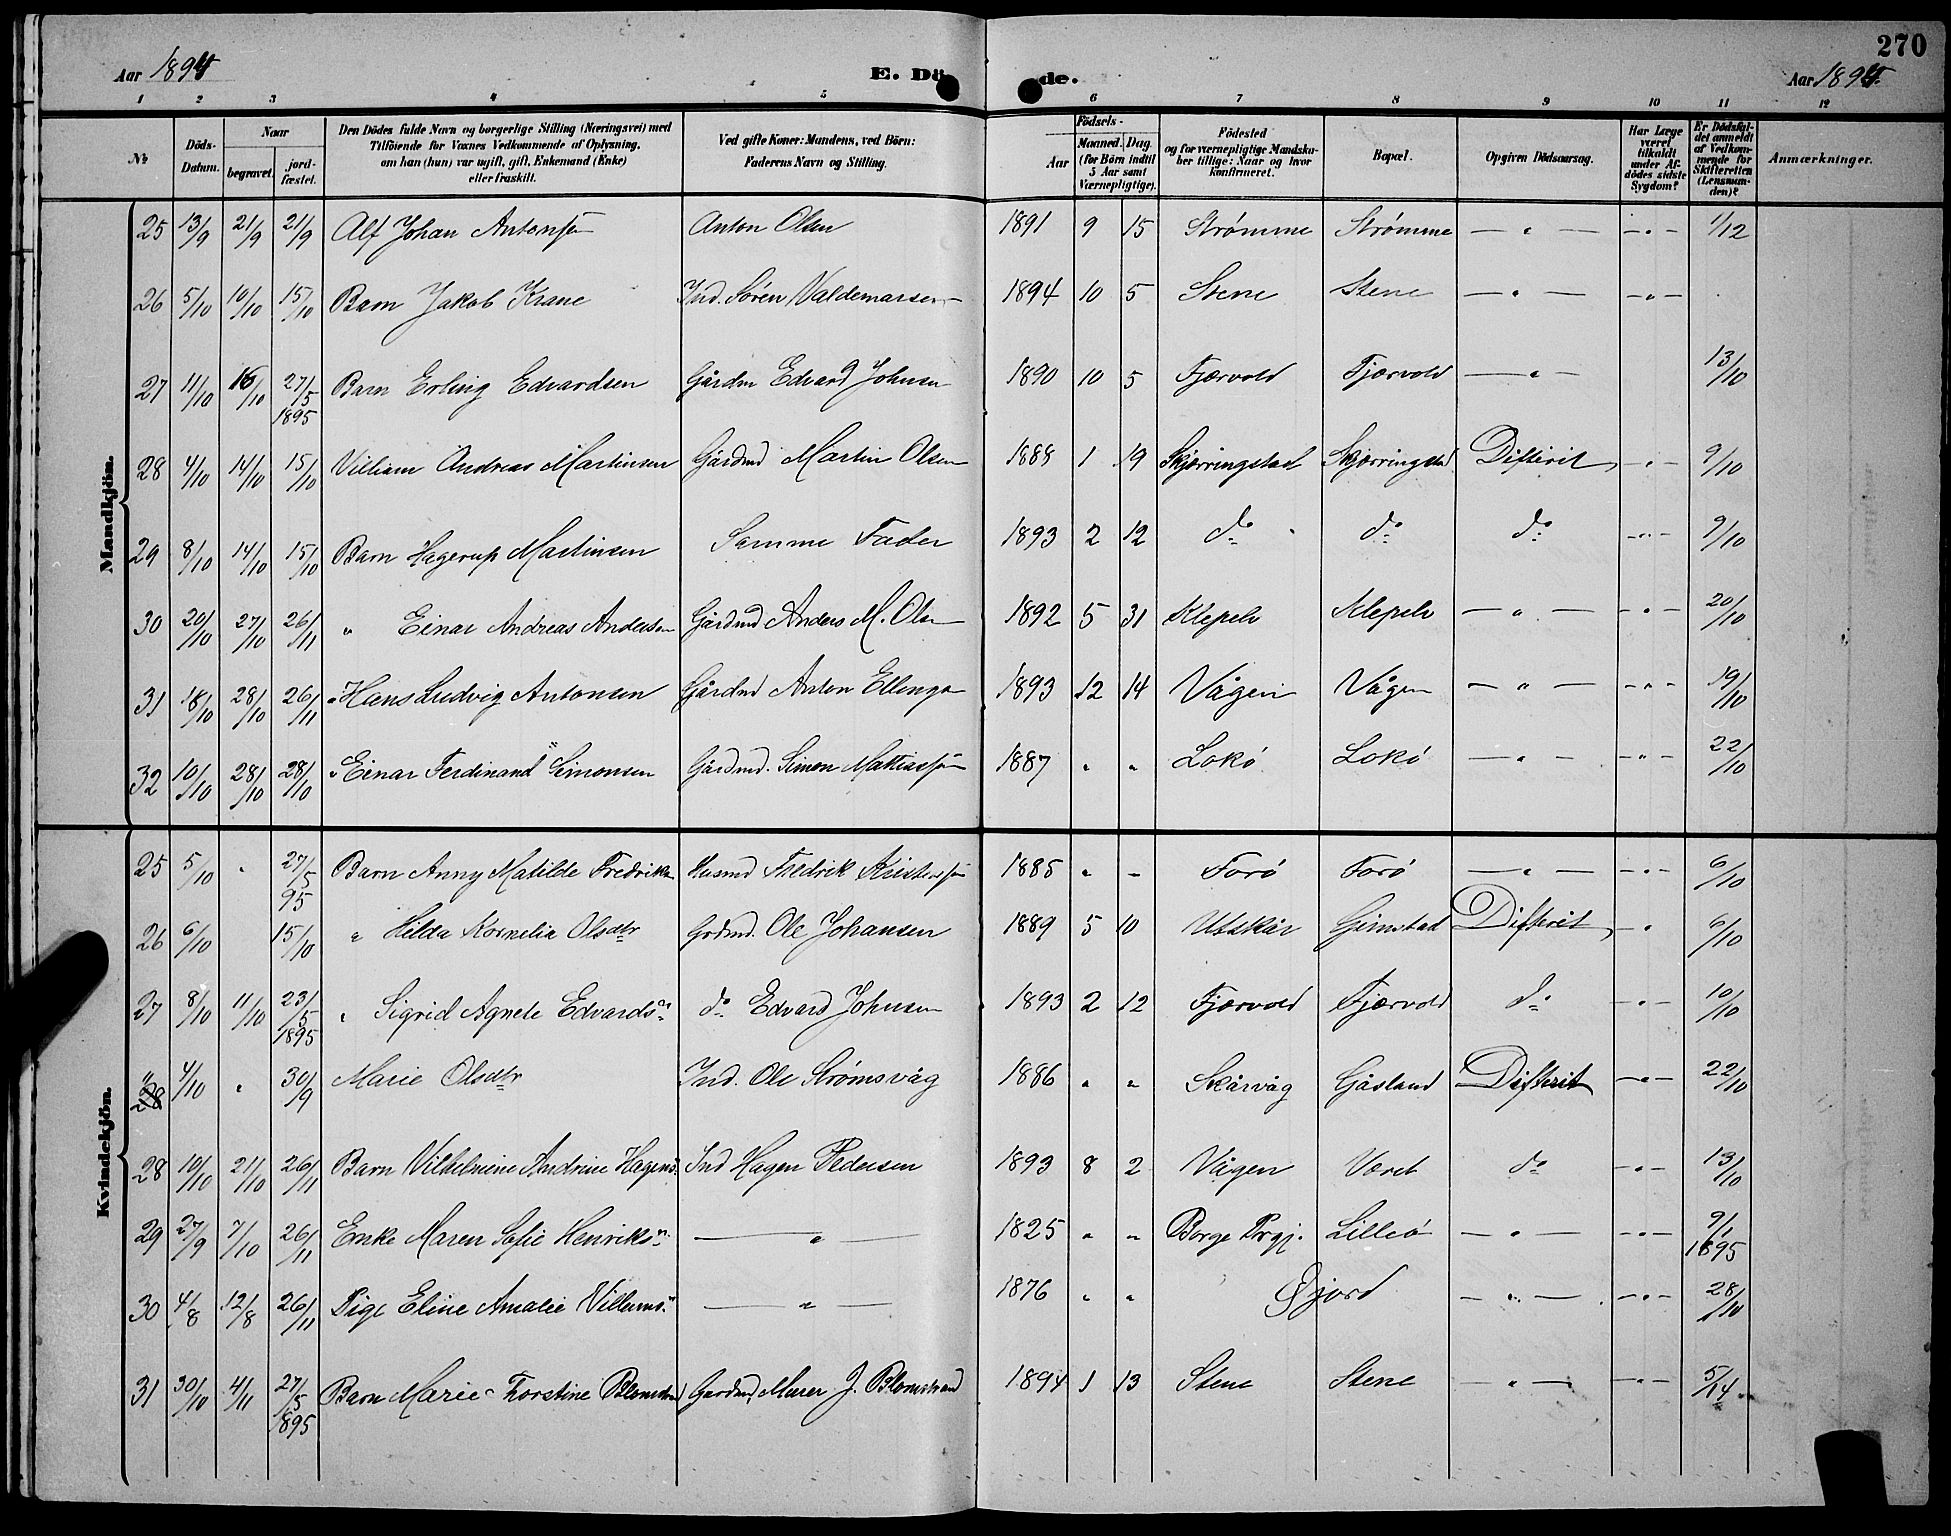 270
Aar 1894 E. Dö de. Aar 1894.
1 2 3 4 5 6 7 8 9 10 11 12
No Döds-Datum. Naar begravet. jord-fæstet. Den Dödes fulde Navn og borgerlige Stilling (Næringsvei) med Tilföiende for Voxnes Vedkommende af Oplysning, om han (hun) var ugift, gift, Enkemand (Enke) eller fraskilt. Ved gifte Koner: Mandens, ved Börn: Faderens Navn og Stilling. Födsels- Aar Maaned. Dag (for Börn indtil 5 Aar samt Værnepligtige). Födested og for værnepligtige Mandska-ber tillige: Naar og hvor konfirmeret. Bopæl. Opgiven Dödsaarsag. Har Læge været tilkaldt under Af-dödes sidste Sygdom? Er Dödsfal-det anmeldt af Vedkom-mende for Skifteretten (Lensman-den)? Anmærkninger.
Mandkjön.
25 13/9 21/9 21/9 Alf Johan Antonsen Anton Olsen 1891 9 15 Strømme Strømme — " — - " - 1/12
26 5/10 10/10 15/10 Barn Jakob Krane Ind. Sören Valdemarsen 1894 10 5 Stene Stene — " — - " -
27 11/10 16/10 27/5 1895 Barn Erling Edvardsen Gårdm Edvard Johnsen 1890 10 5 Fjærvold Fjærvold — " — 13/10
28 4/10 14/10 15/10 Villiam Andreas Martinsen Gårdmd Martin Olsen 1888 1 19 Skjørringstad Skjørringstad Difterit - " - 9/10
29 8/10 14/10 15/10 Barn Hagerup Martinsen Samme Fader 1893 2 12 do do do - " - 9/10
30 20/10 27/10 26/11 " Einar Andreas Andersen Gårdmd Anders M. Olsen 1892 5 31 Klepelv Klepelv — " — - " - 20/10
31 18/10 28/10 26/11 " Hans Ludvig Antonsen Gårdmd Anton Ellingsen 1893 12 14 Vågen Vågen — " — - " - 19/10
32 10/10 28/10 28/10 " Einar Ferdinand Simonsen Gårdmd. Simon Mathiassen 1887 " " Lokø Lokø — " — - " - 22/10
Kvindekjön.
25 5/10 " 27/5 95 Barn Anny Matilde Fredriks Husmd Fredrik Kristensen 1885 " " Forö Forö — " — - " - 6/10
26 6/10 15/10 " Helda Kornelia Olsdtr Grdmd. Ole Johansen 1889 5 10 Utskår Gimstad Difterit - " 6/10
27 8/10 11/10 23/5 1895 " Sigrid Agnete Edvards do Edvard Johnsen 1893 2 12 Fjærvold Fjærvold do - " - 10/10
28 4/10 " 30/9 Marie Olsdtr Ind. Ole Strømsvåg 1886 " " Skårvåg Gåsland Difterit - " - 22/10
28 10/10 21/10 26/11 Barn Vilhelmine Andrine Hagens. Ind Hagen Pedersen 1893 8 2 Vågen Været do - " - 13/10
29 27/9 7/10 26/11 Enke Maren Sofie Henriks — " — 1825 " " Borge Prgj. Lilleö — " — - " - 9/1 1895
30 4/8 12/8 26/11 Pige Eline Amalie Villums — " — 1876 " " Øjord — " — - " - 28/10
31 30/10 4/11 27/5 1895 Barn Marie Torstine Blomstrand Gardmd, Murer J. Blomstrand 1894 1 13 Stene Stene — " — - " - 5/14